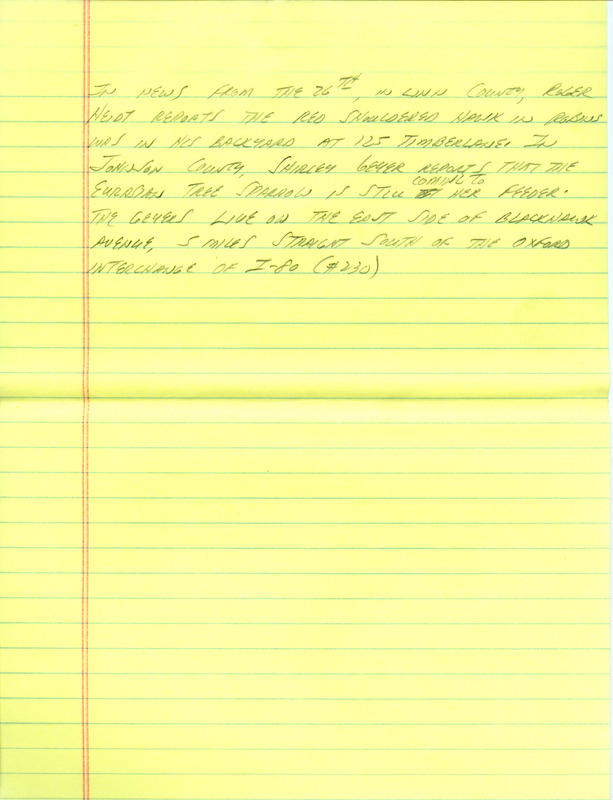 IN NEWS FROM THE 26TH, IN LINN COUNTY, ROGER
HEIDT REPORTS THE RED SHOULDERED HAWK IN ROBINS
WAS IN HIS BACKYARD AT 125 TIMBERLANE. IN
JOHNSON COUNTY, SHIRLEY GEYER REPORTS THAT THE
EUROPEAN TREE SPARROW IS STILL COMING TO HER FEEDER.
THE GEYERS LIVE ON THE EAST SIDE OF BLACKHAWK
AVENUE, 5 MILES STRAIGHT SOUTH OF THE OXFORD
INTERCHANGE OF I-80 (#230)